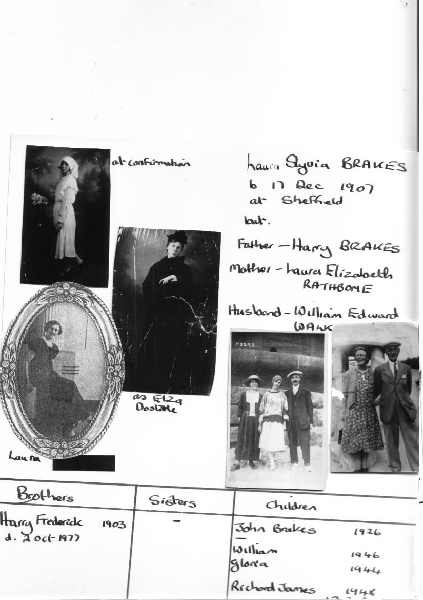 at confirmation
Laura Sylvia BRAKES
b 17 Dec 1907
at Sheffield
bat.
Father - Harry BRAKES
Mother - Laura Elizabeth
RATHBONE
Husband - William Edward
as Eliza
Doolittle
Laura
Brothers
Sisters
Children
Harry Frederick 1903
d. 2 Oct 1977
-
John Brakes 1926
William 1946
Gloria 1944
Richard James 1948